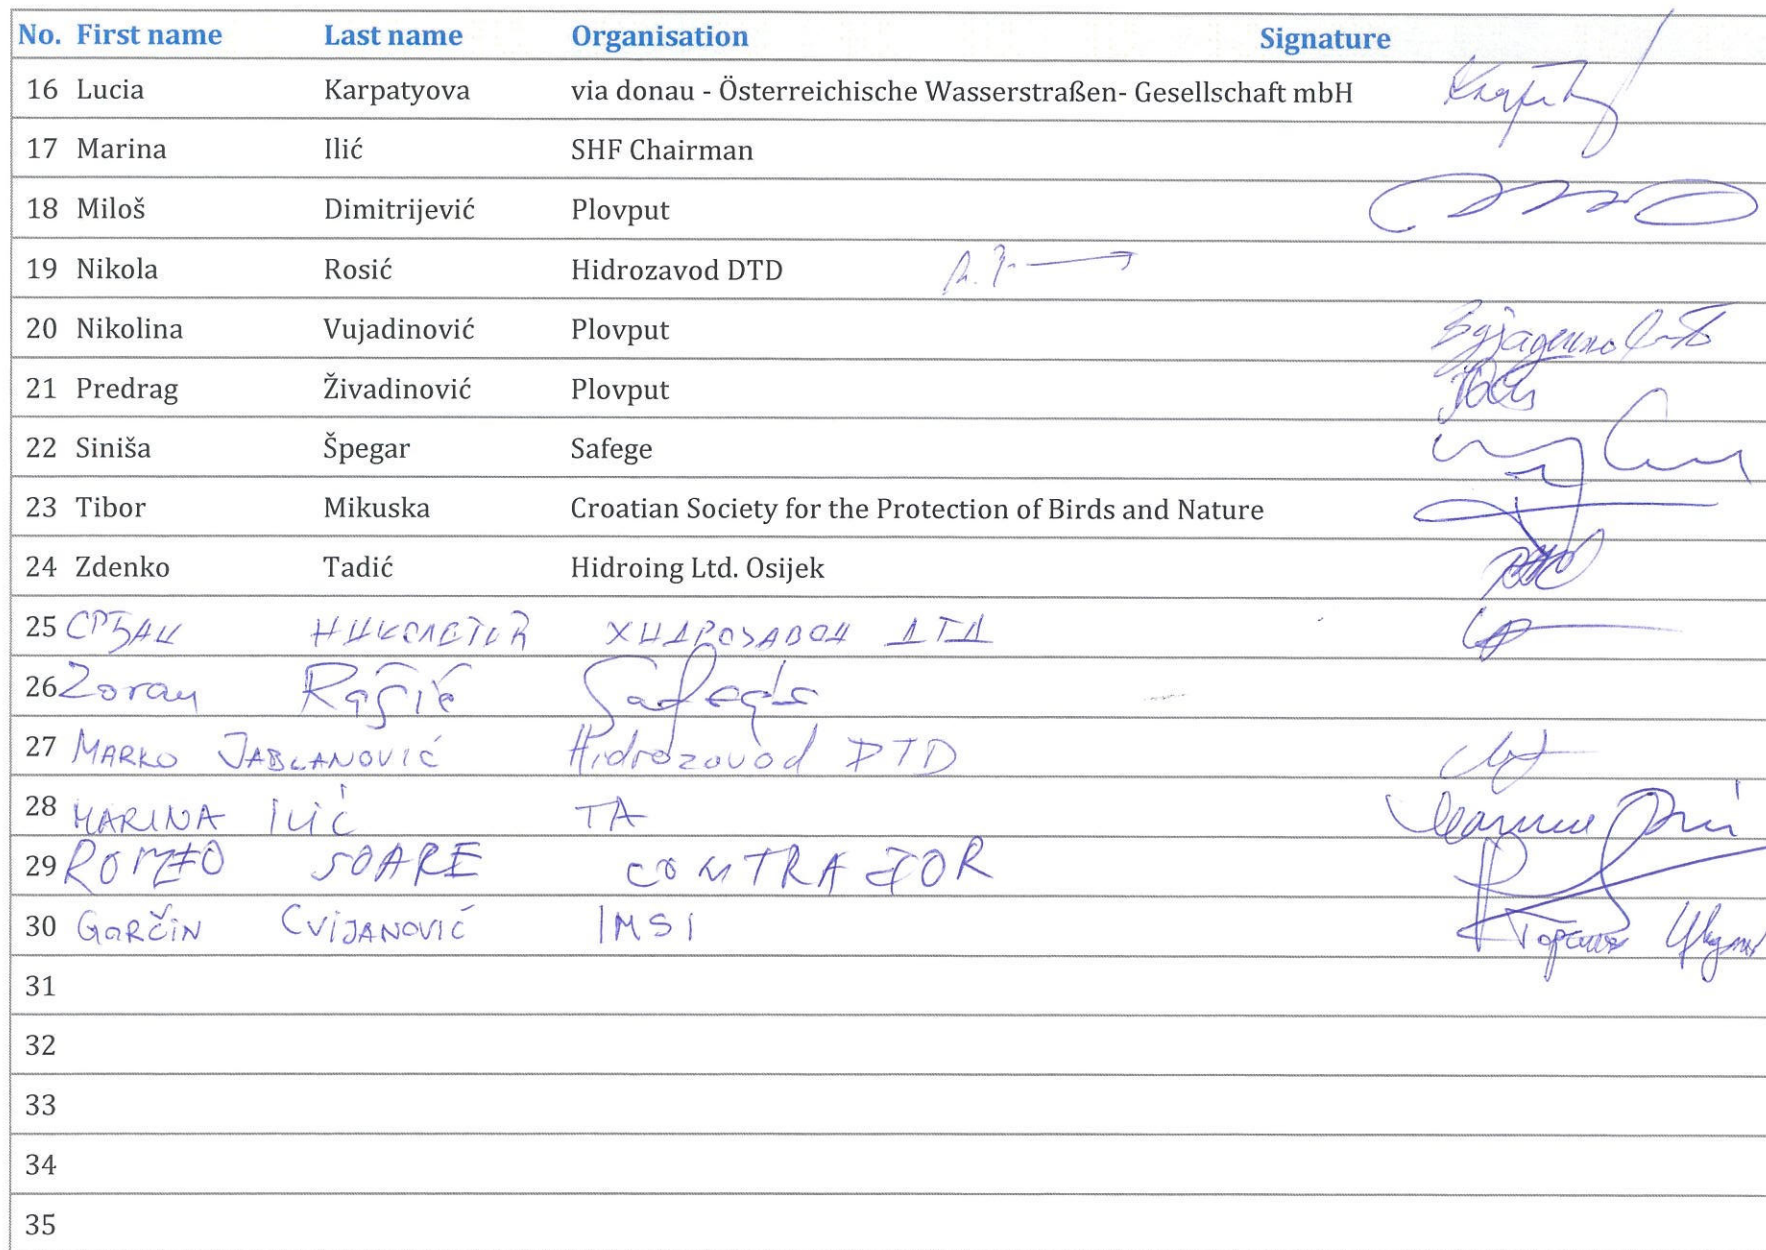 No. First name Last name Organisation Signature
16 Lucia Karpatyova via donau - Österreichische Wasserstraßen- Gesellschaft mbH
17 Marina Ilić SHF Chairman
18 Miloš Dimitrijević Plovput
19 Nikola Rosić Hidrozavod DTD
20 Nikolina Vujadinović Plovput
21 Predrag Živadinović Plovput
22 Siniša Špegar Safege
23 Tibor Mikuska Croatian Society for the Protection of Birds and Nature
24 Zdenko Tadić Hidroing Ltd. Osijek
25 СРЂАН НИКОЛЕТИЋ ХИДРОЗАВОД ДТД
26 Zoran Rašić Safege
27 MARKO JABLANOVIĆ Hidrozavod DTD
28 MARINA ILIĆ TA
29 ROMEO SOARE CONTRACTOR
30 GORČIN CVIJANOVIĆ IMSI
31
32
33
34
35